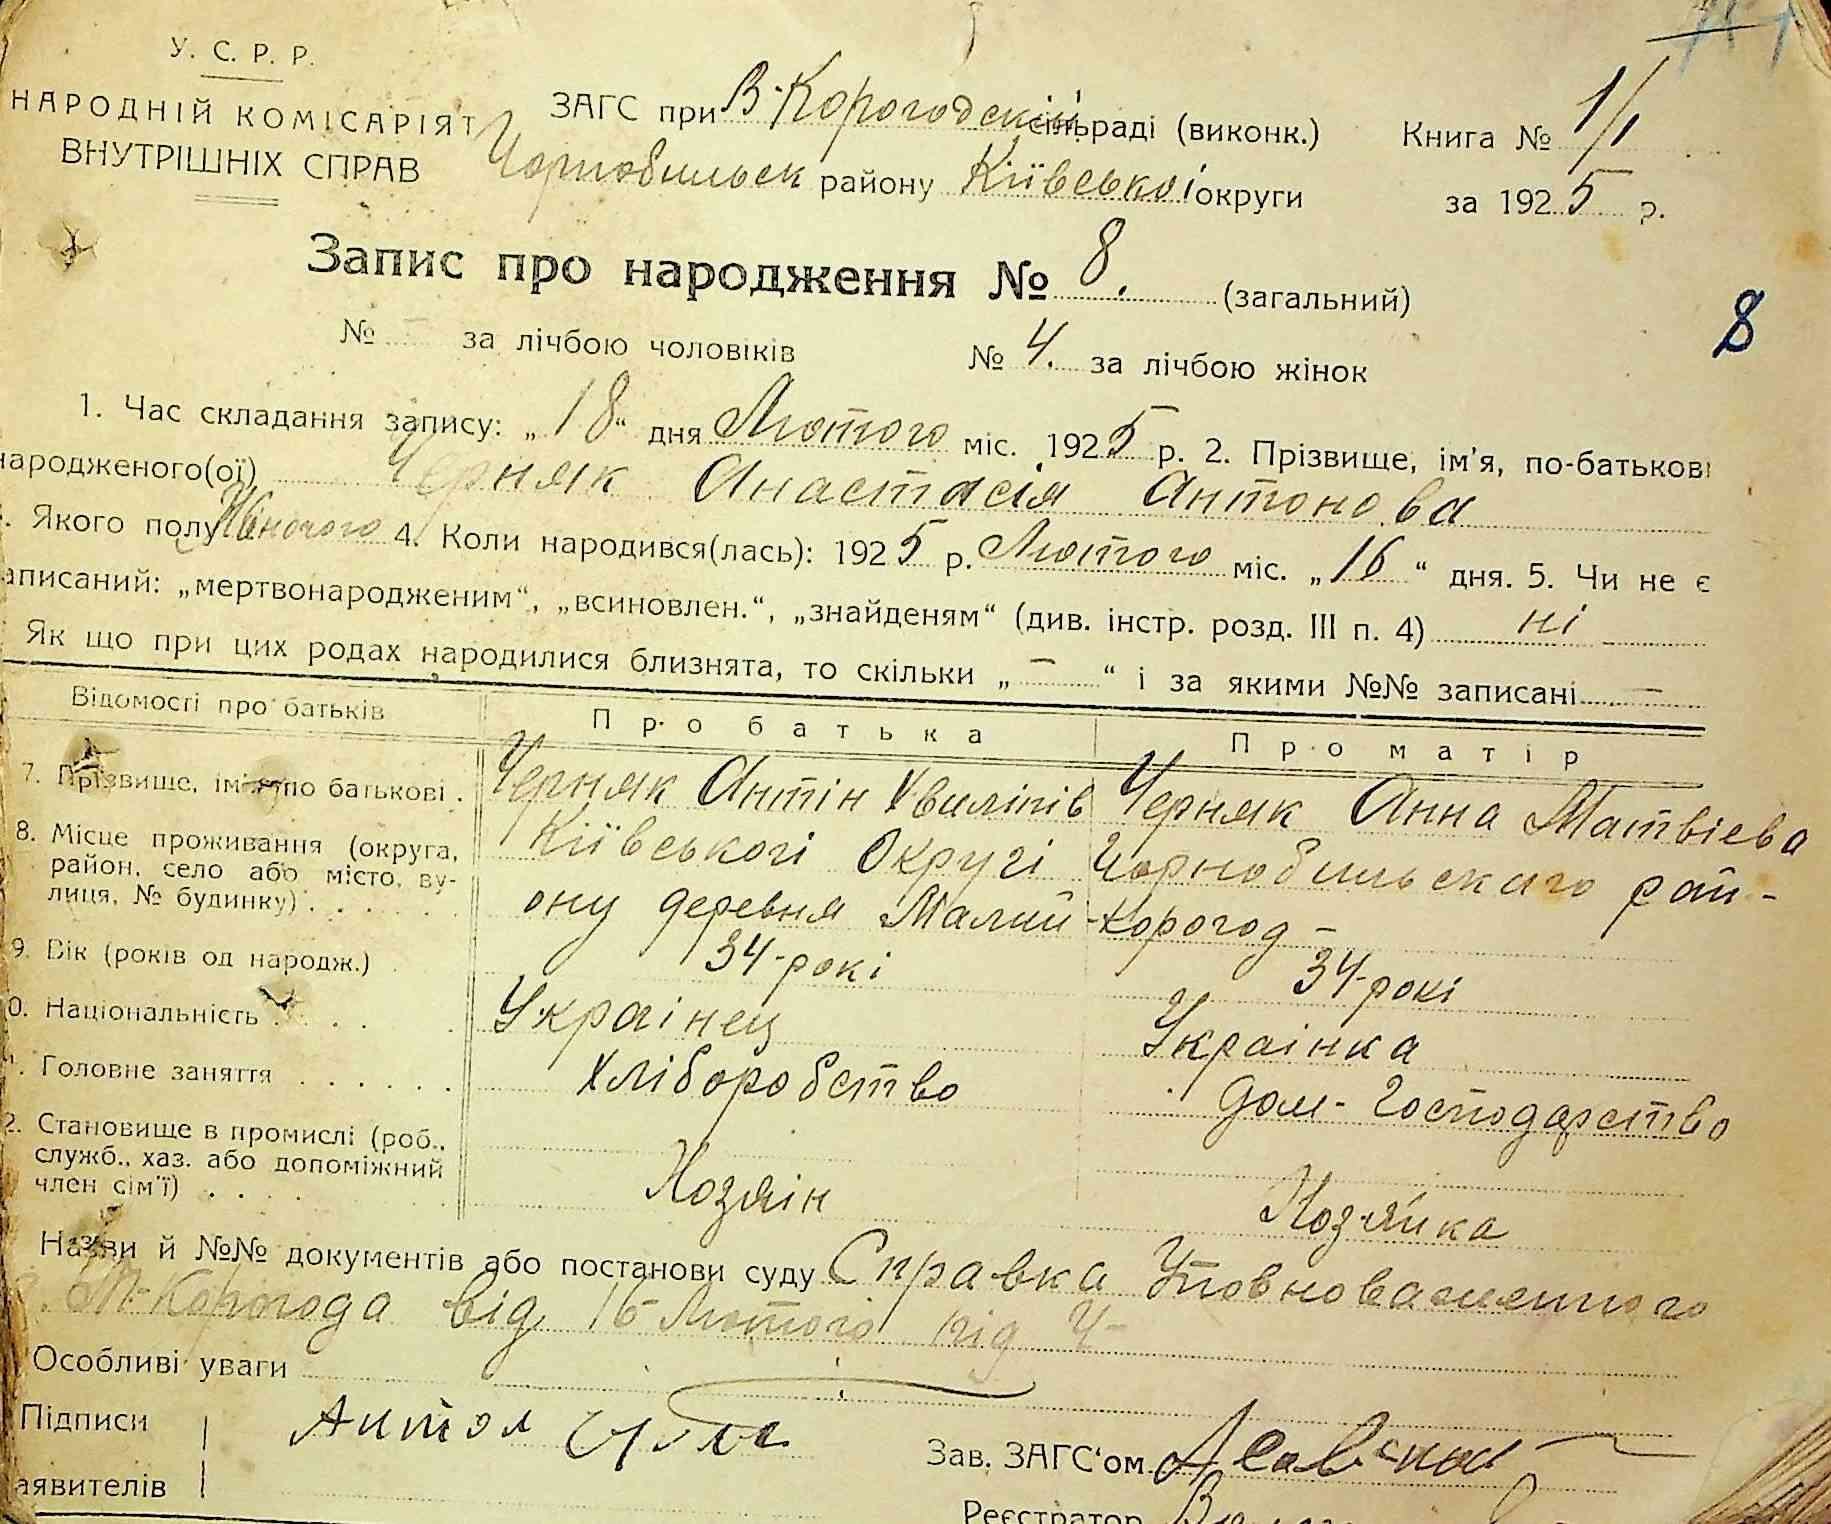 У. С. Р. Р.
НАРОДНІЙ КОМІСАРІЯТ
ВНУТРІШНІХ СПРАВ
ЗАГС при В-Корогодскій сільраді (виконк.)
Чорнобильск району Київської округи
Книга № 1/1
за 1925 р.
Запис про народження № 8. (загальний)
8
№ – за лічбою чоловіків № 4. за лічбою жінок
1. Час складання запису: „18“ дня Лютого міс. 1925 р. 2. Прізвище, ім’я, по-батькові
народженого(ої) Черняк Анастасія Антонова
. Якого полу Жіночого 4. Коли народився(лась): 1925 р. Лютого міс. „16“ дня. 5. Чи не є
аписаний: „мертвонародженим“, „всиновлен.“, „знайденям“ (див. інстр. розд. III п. 4) ні
Як що при цих родах народилися близнята, то скільки „–“ і за якими №№ записані –
Відомості про батьків Про батька Про матір
7. Прізвище, ім’я по батькові . Черняк Антін Хвиліпів Черняк Анна Матвієва
8. Місце проживання (округа, район, село або місто, вулиця, № будинку) Київськоі Округі Чорнобильскаго рай-
ону деревня Малий-Корогод –
9. Вік (років од народж.) 34-рокі 34-рокі
0. Національність Украінец Украінка
. Головне заняття Хліборобство дом-Господарство
2. Становище в промислі (роб., служб., хаз. або допоміжний член сім’ї) Хозяін Хозяйка
Назви й №№ документів або постанови суду Справка Уповноваженного
М-Корогода від 16 Лютого під Ч-
Особливі уваги
Підписи
аявителів
Антон
Зав. ЗАГС‘ом
Реєстратор